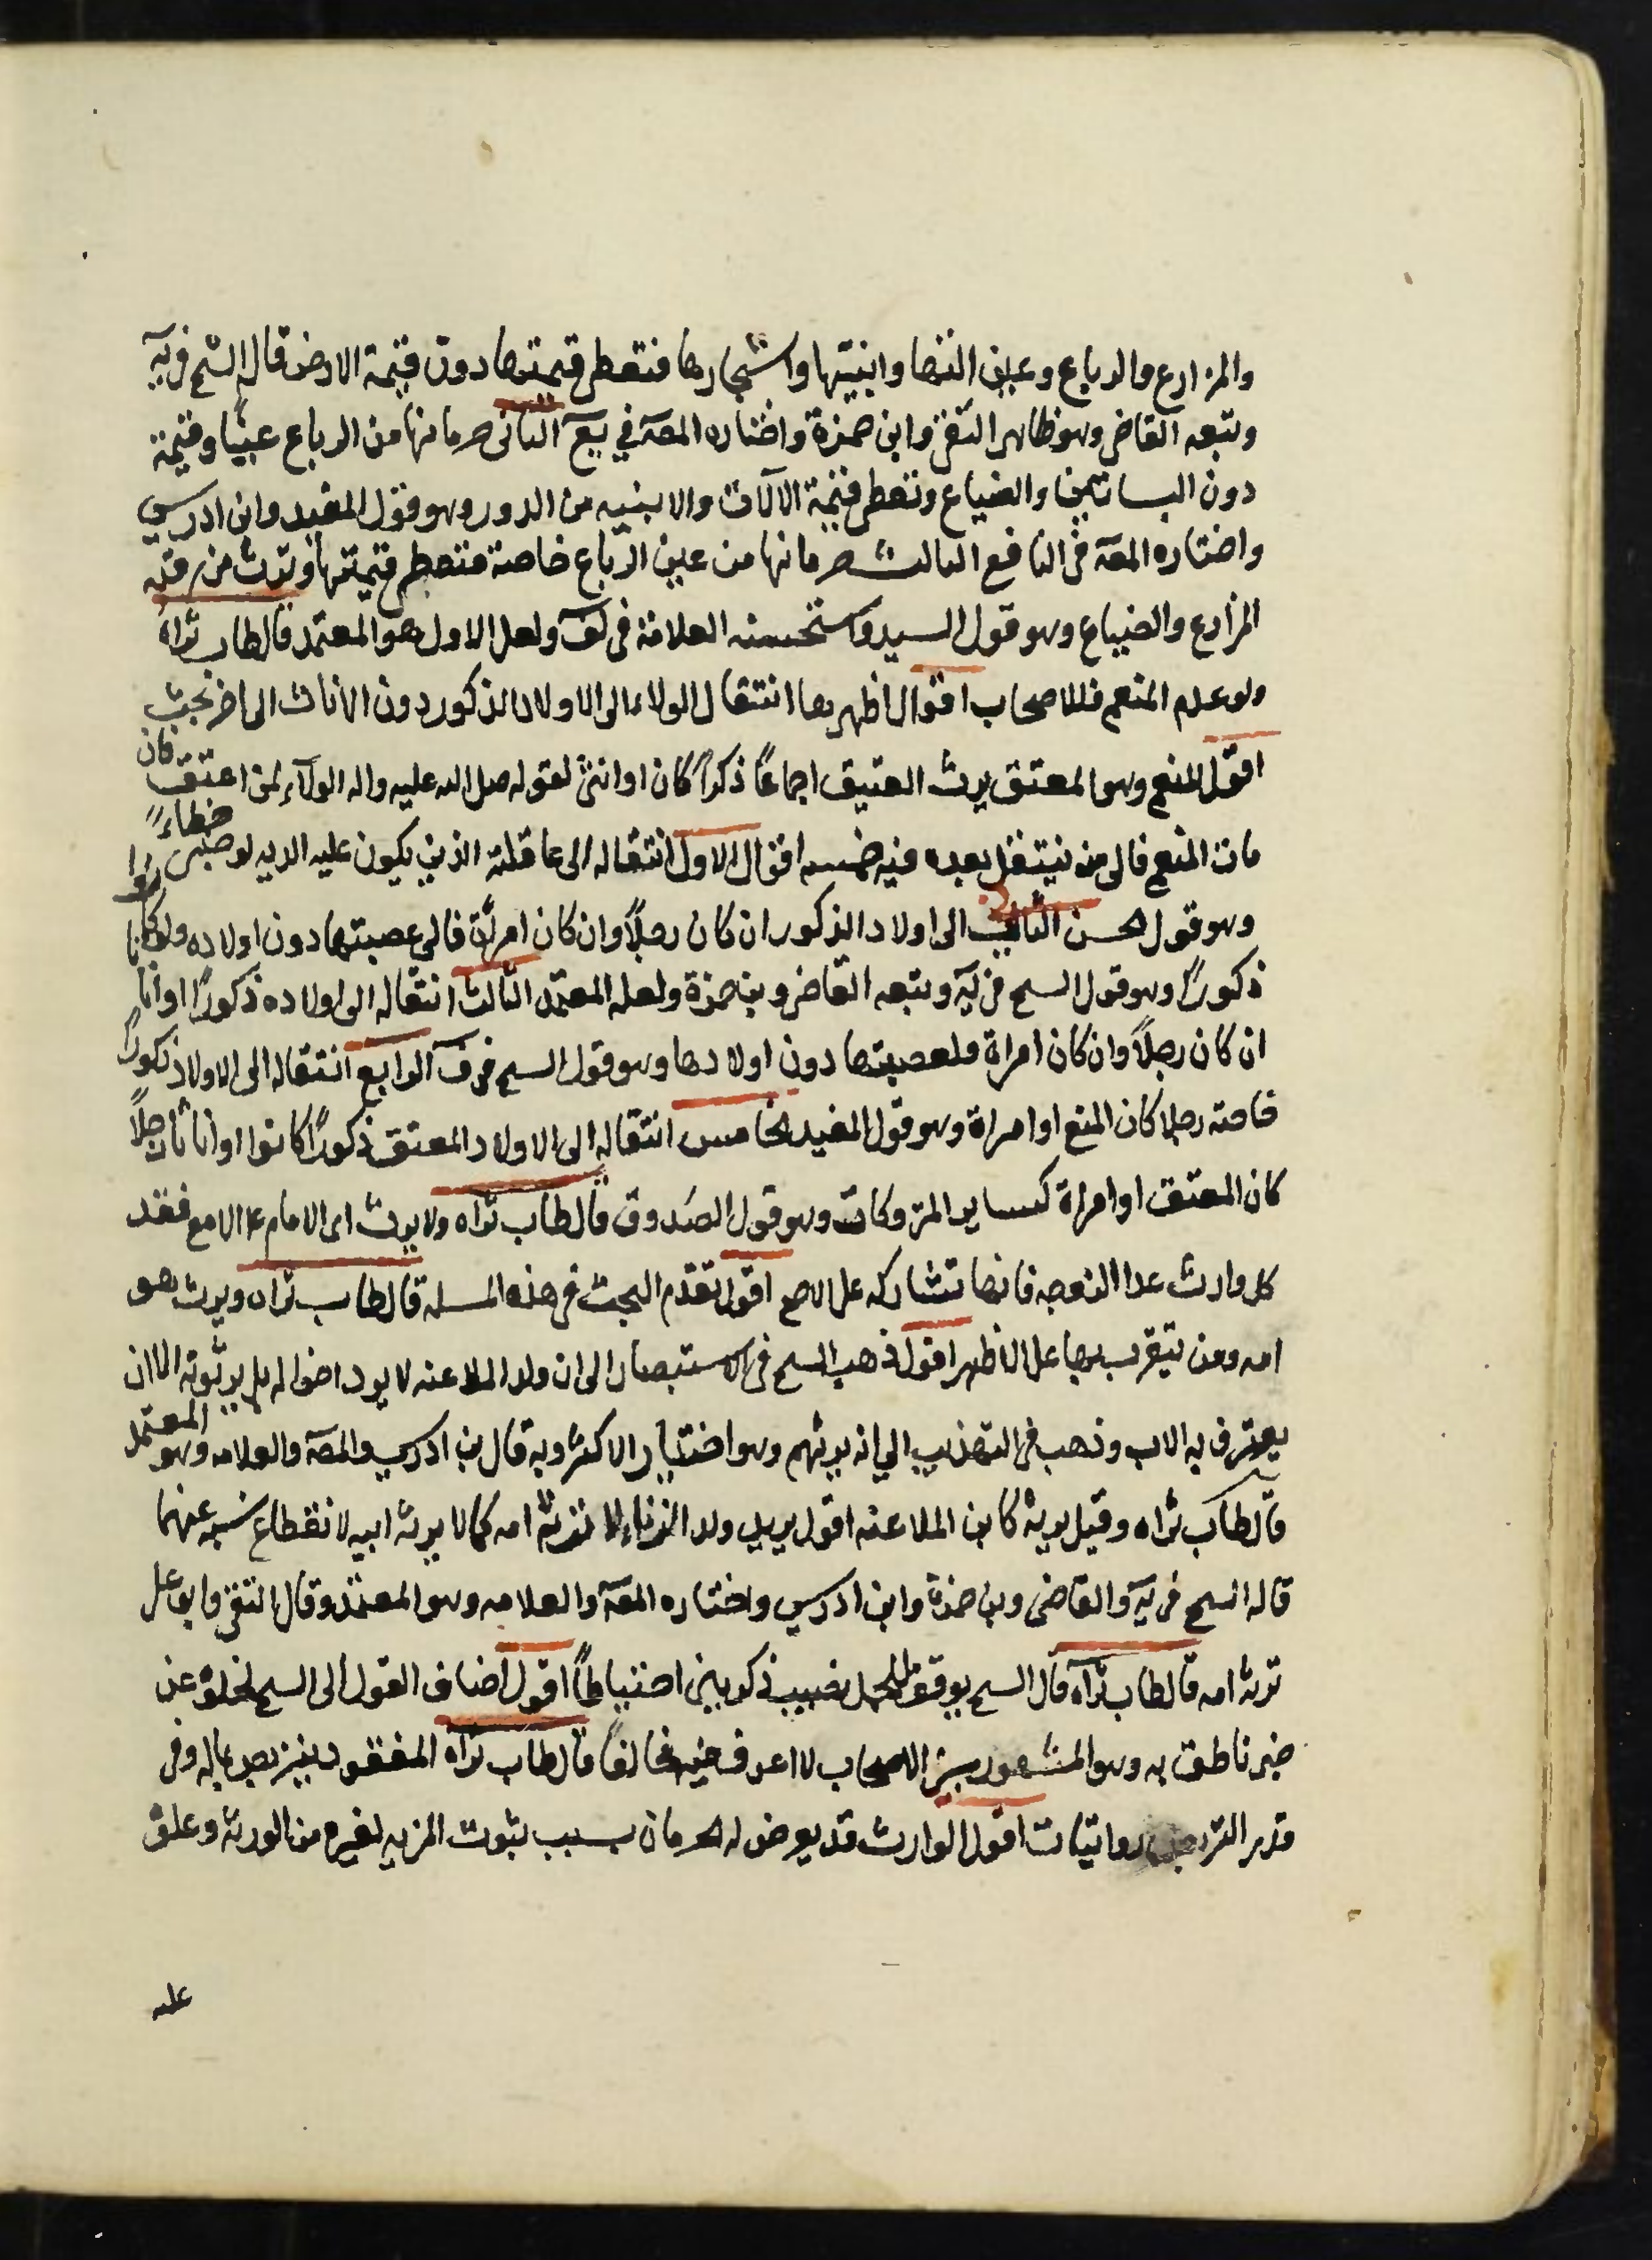 والمزارع والرباع وعين النها وابنيتها واشجارها فتعطى قيمتها دون قيمة الارض قاله الشيخ في يه
وتبعه القاضي وهو ظاهر التقى وابن حمزة واختاره المصه في يع الثاني حرمانها من الرباع عينا وقيمة
دون البساتين والضياع وتعطى قيمة الالات والابنيه من الدور وهو قول المفيد وابن ادريس
واختاره المصه في النافع الثالث حرمانها من عين الرباع خاصة فتعطى قيمتها وترث من رقبه
المزارع والضياع وهو قول السيد واستحسنه العلامة في لف ولعل الاول هو المعتمد قال طاب ثراه
ولو عدم المنعم فللاصحاب اقوال اظهرها انتقال الولاء الى الاولاد الذكور دون الاناث الى اخر بحث
اقول المنعم وهو المعتق يرث العتيق اجماعا ذكرا كان او انثى لقوله صلى الله عليه واله الولاء لمن اعتق فان
مات المنعم فالى من ينتقل بعده فيه خمسه اقوال الاول انتقاله الى عاقلته الذين يكون عليه الديه لو جنى خطاءً
وهو قول الحسن الثاني الى اولاد الذكور ان كان رجلاً وان كان امراة فالى عصبتها دون اولاده ولو كانوا
ذكوراً وهو قول الشيخ في يه وتبعه القاضي وبن حمزة ولعله المعتمد الثالث انتقاله الى اولاده ذكورًا او اناثا
ان كان رجلاً وان كان امراة فلعصبتها دون اولادها وهو قول الشيخ في ف الرابع انتقاله الى الاولاد ذكوراً
خاصته رجلا كان المنعم او امراة وهو قول المفيد الخامس انتقاله الى الاولاد المعتق ذكورًا كانوا او اناثا رجلاً
كان المعتق او امراة كساير المتروكات وهو قول الصدوق قال طاب ثراه ولا يرث اى الامام ع الا مع فقد
كل وارث عدا الزوجه فانها تشاركه على الاصح اقول تقدم البحث في هذه المسله قال طاب ثراه ويرث هو
امه ومن يتقرب بها على الاظهر اقول ذهب الشيخ في الاستبصار الى ان ولد الملاعنه لا يرد اخواله بل يرثونه الا ان
يعترف به الاب وذهب في التهذيب الى انه يرثهم وهو اختيار الاكثر وبه قال بن ادريس والمصه والعلامه وهو المعتمد
قال طاب ثراه وقيل يرثه كابن الملاعنه اقول يريد ولد الزناء لا ترثه امه كما لا يرثه ابيه لانقطاع نسبه عنهما
قاله الشيخ في يه والقاضي وبن حمزة وابن ادريس واختاره المصه والعلامه وهو المعتمد وقال التقى وابو على
ترثه امه قال طاب ثراه قال الشيخ يوقف للحمل نصيب ذكرين احتياطاً اقول اضاف القول الى الشيخ لخلوه عن
خبر ناطق به وهو المشهور بين الاصحاب لا اعرف فيه مخالفا قال طاب ثراه المفقود يتربص بماله وفى
قدر التربص روايتان اقول الوارث قد يعرض له الحرمان بسبب ثبوت المزيه لغيره من الورثه وعلق
عله